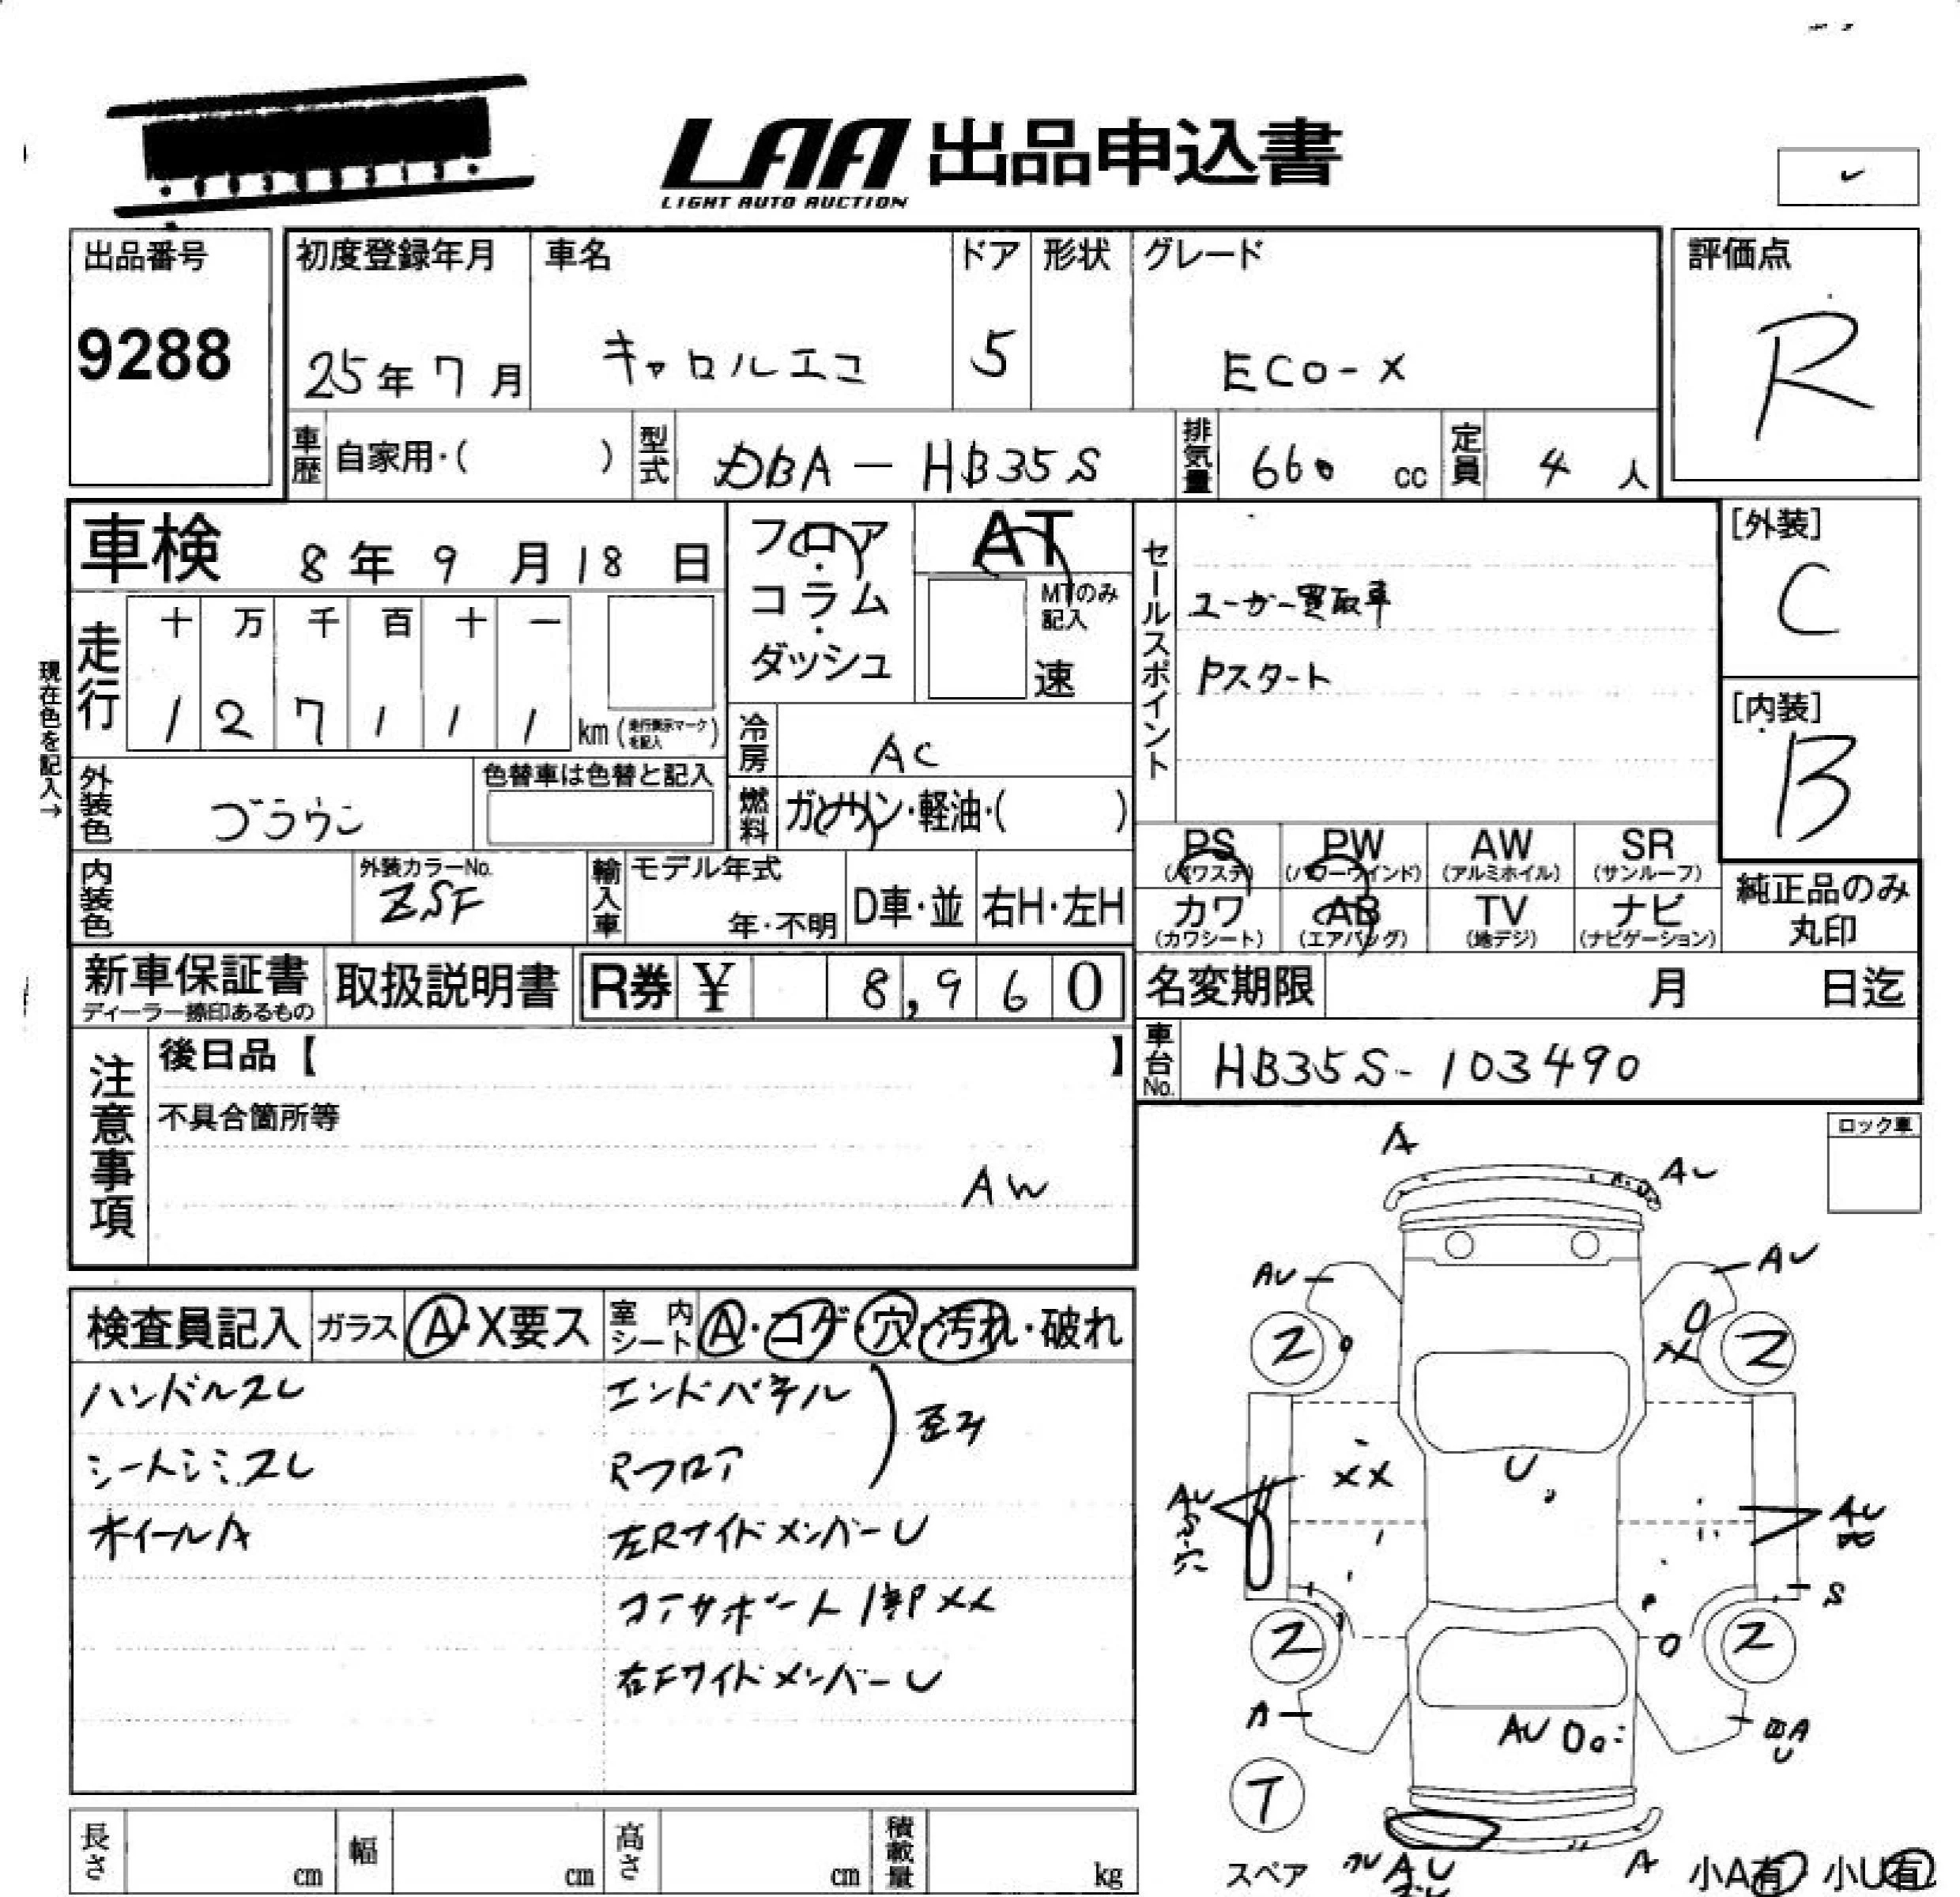 LAA 出品申込書
LIGHT AUTO AUCTION
出品番号
9288
初度登録年月
25年7月
車名
キャロルエコ
ドア
5
形状
グレード
ECO-X
評価点
R
車歴 自家用・( )
型式 DBA-HB35S
排気量 660 cc
定員 4 人
車検 8年9月18日
フロア・コラム・ダッシュ
AT
MTのみ記入
速
セールスポイント
ユーザー買取車
Pスタート
[外装]
C
[内装]
B
現在色を記入→
走行 十 万 千 百 十 一
1 2 7 1 1 1 km (走行表示マークを記入)
冷房 AC
外装色 ブラウン
色替車は色替と記入
燃料 ガソリン・軽油・( )
PS (パワステ) PW (パワーウインド) AW (アルミホイル) SR (サンルーフ)
カワ (カワシート) AB (エアバッグ) TV (地デジ) ナビ (ナビゲーション)
純正品のみ丸印
内装色
外装カラーNo.
ZSF
輸入車 モデル年式
年・不明
D車・並 右H・左H
新車保証書
ディーラー捺印あるもの
取扱説明書
R券 ¥ 8,960
名変期限 月 日迄
車台No. HB35S-103490
注意事項
後日品【 】
不具合箇所等
AW
ロック車
検査員記入 ガラス A・X要ス 室内シート A・コゲ・穴・汚れ・破れ
ハンドルスレ
シートシミ.スレ
ホイールA
エンドパネル
Rフロア
歪み
左RサイドメンバーU
コアサポート1部XX
右FサイドメンバーU
A
AU
AU
AU
2
2
XX
XX
U
AU
穴
AU
S
2
2
A
AU
A
U
T
スペア
AU
A
小A有 小U有
長さ cm
幅 cm
高さ cm
積載量 kg